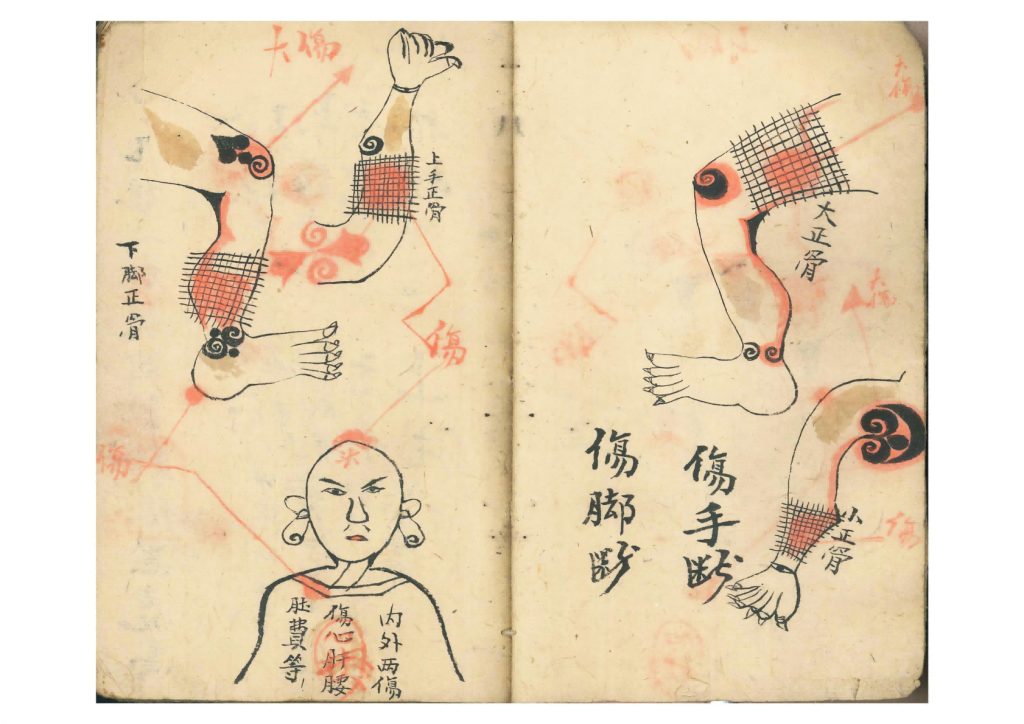 大傷
上手正骨
下脚正骨
傷
傷
内外两傷
傷心肝腰
肚費等
大傷
大正骨
大傷
傷手断
傷脚断
正骨
傷